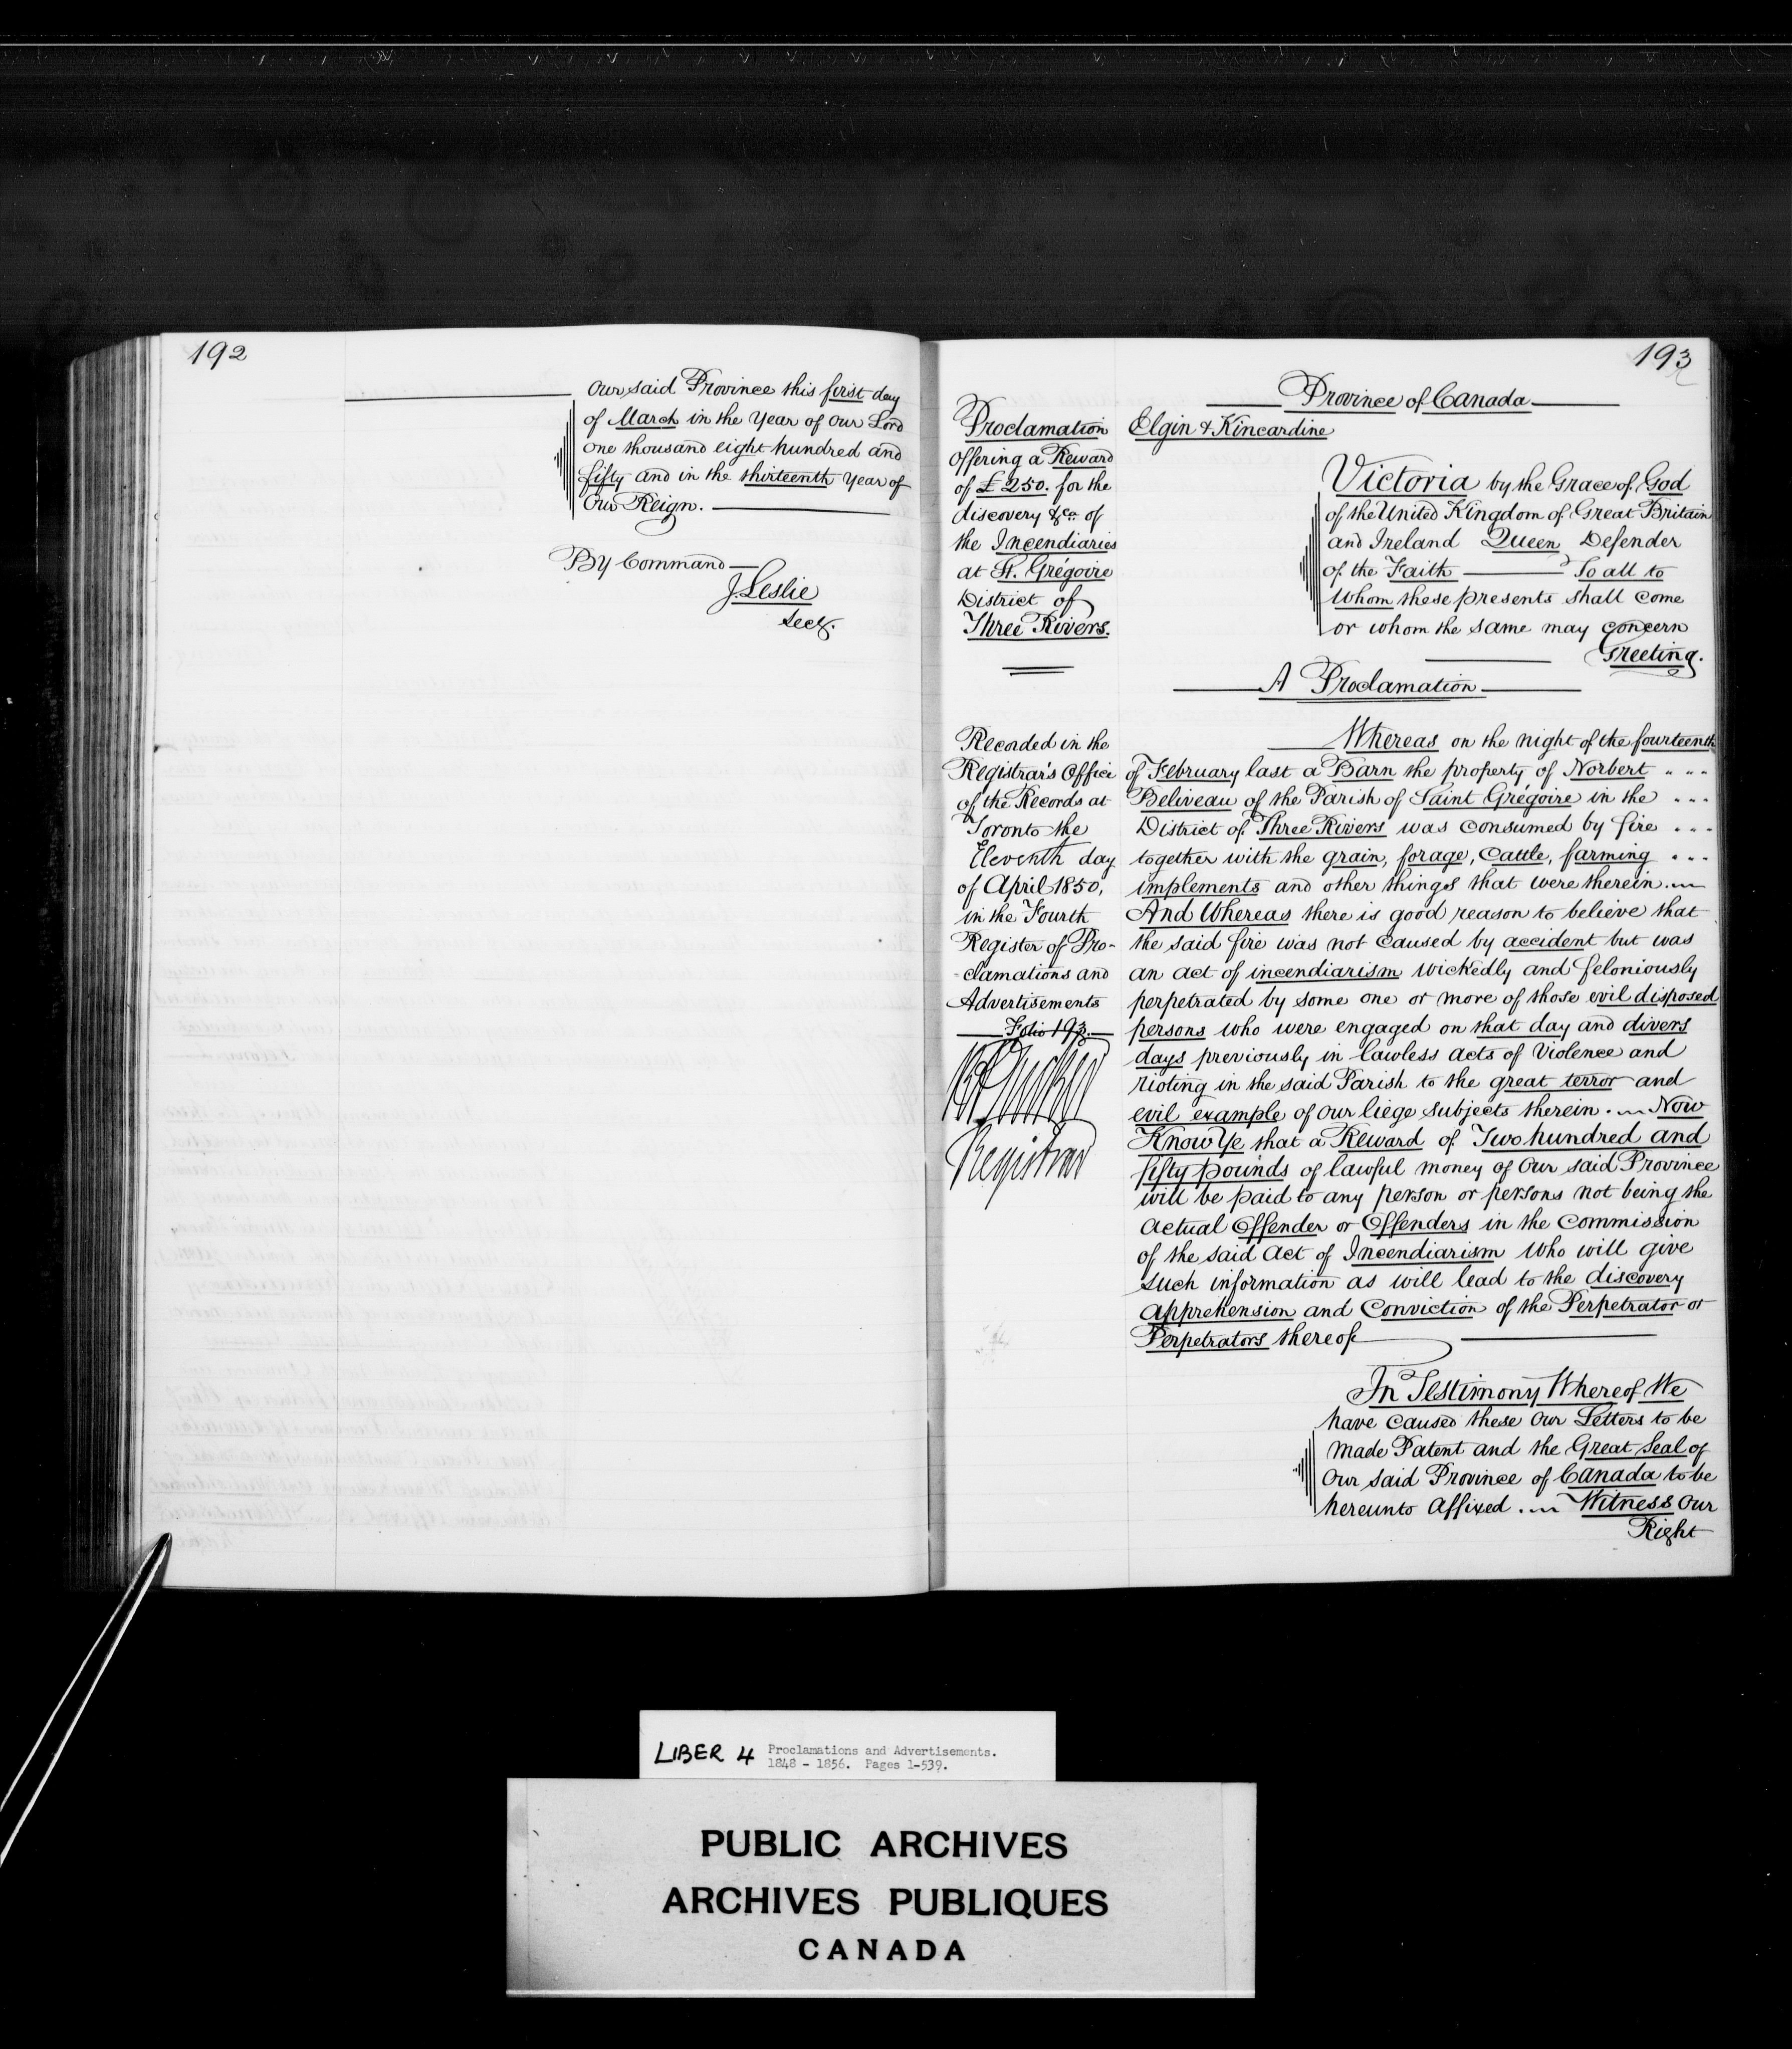 192
our said Province this first day
of March in the Year of our Lord
one thousand eight hundred and
fifty and in the thirteenth Year of
Our Reign.
By Command
J. Leslie
Secy.
193
Province of Canada
Proclamation
Offering a Reward
of £250. for the
discovery &ca. of
the Incendiaries
at St. Grégoire
District of
Three Rivers.
Recorded in the
Registrar's Office
of the Records at
Toronto the
Eleventh day
of April 1850,
in the Fourth
Register of Pro-
-clamations and
Advertisements
Folio 193.
Registrar
Elgin & Kincardine
Victoria by the Grace of God
of the United Kingdom of Great Britain
and Ireland Queen Defender
of the Faith To all to
Whom these presents shall come
or whom the same may concern
Greeting.
A Proclamation
Whereas on the night of the fourteenth
of February last a Barn the property of Norbert " " "
Beliveau of the Parish of Saint Grégoire in the " " "
District of Three Rivers was consumed by fire " " "
together with the grain, forage, Cattle, farming " " "
implements and other things that were therein.
And Whereas there is good reason to believe that
the said fire was not caused by accident but was
an act of incendiarism wickedly and feloniously
perpetrated by some one or more of those evil disposed
persons who were engaged on that day and divers
days previously in lawless acts of Violence and
rioting in the said Parish to the great terror and
evil example of our liege subjects therein. Now
Know Ye that a Reward of Two hundred and
fifty pounds of lawful money of Our said Province
will be paid to any person or persons not being the
actual Offender or Offenders in the Commission
of the said Act of Incendiarism who will give
such information as will lead to the discovery
Apprehension and Conviction of the Perpetrator or
Perpetrators thereof
In Testimony Whereof We
have caused these Our Letters to be
made Patent and the Great Seal of
Our said Province of Canada to be
hereunto Affixed. Witness Our
Right
LIBER 4 Proclamations and Advertisements.
1848 - 1856. Pages 1-539.
PUBLIC ARCHIVES
ARCHIVES PUBLIQUES
CANADA